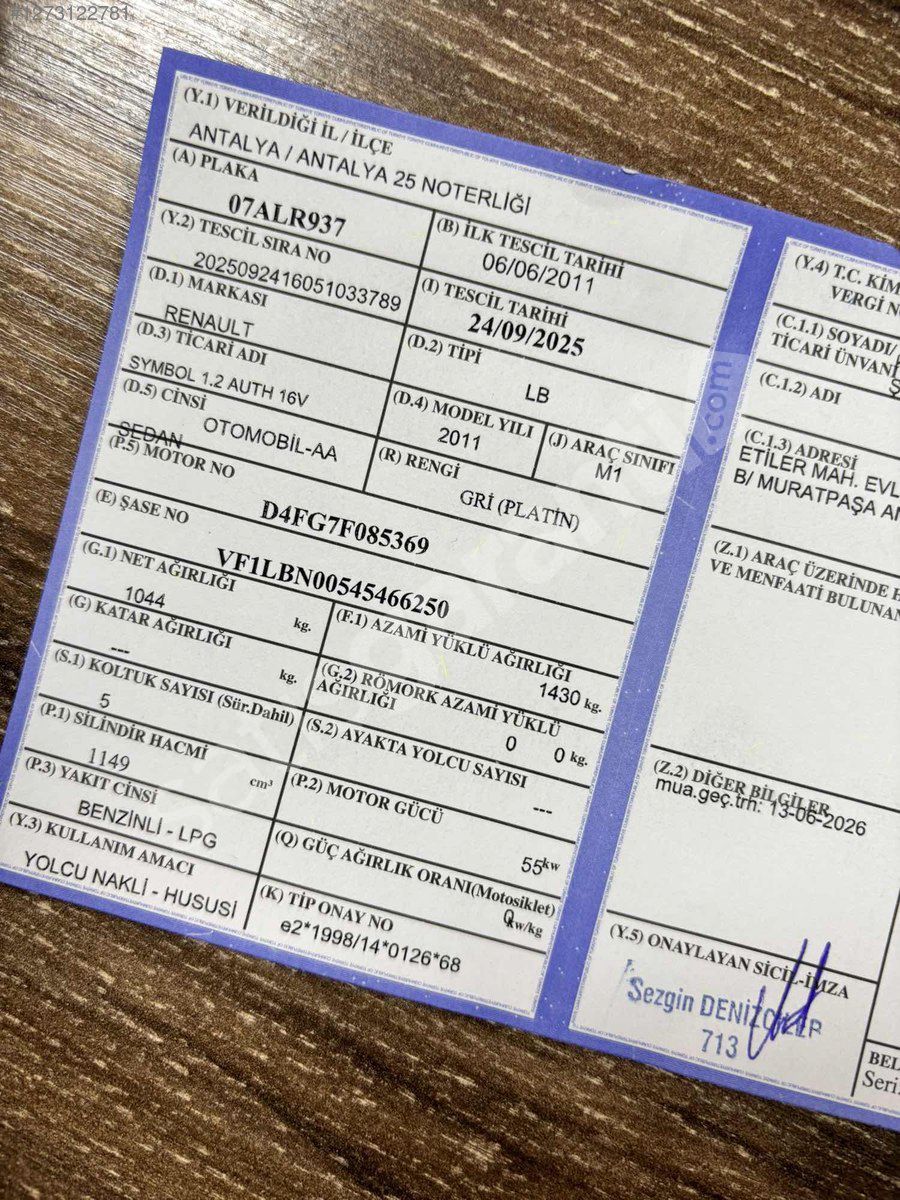 #1273122781
(Y.1) VERİLDİĞİ İL / İLÇE
ANTALYA / ANTALYA 25 NOTERLİĞİ
(A) PLAKA
07ALR937
(B) İLK TESCİL TARİHİ
06/06/2011
(Y.2) TESCİL SIRA NO
2025092416051033789
(I) TESCİL TARİHİ
24/09/2025
(D.1) MARKASI
RENAULT
(D.2) TİPİ
LB
(D.3) TİCARİ ADI
SYMBOL 1.2 AUTH 16V
(D.4) MODEL YILI
2011
(J) ARAÇ SINIFI
M1
(D.5) CİNSİ
OTOMOBİL-AA
SEDAN
(R) RENGİ
GRİ (PLATİN)
(P.5) MOTOR NO
D4FG7F085369
(E) ŞASE NO
VF1LBN00545466250
(G.1) NET AĞIRLIĞI
1044 kg.
(F.1) AZAMİ YÜKLÜ AĞIRLIĞI
1430 kg.
(G) KATAR AĞIRLIĞI
--- kg.
(G.2) RÖMORK AZAMİ YÜKLÜ
AĞIRLIĞI
0 0 kg.
(S.1) KOLTUK SAYISI (Sür.Dahil)
5
(S.2) AYAKTA YOLCU SAYISI
---
(P.1) SİLİNDİR HACMİ
1149 cm³
(P.2) MOTOR GÜCÜ
55 kw
(P.3) YAKIT CİNSİ
BENZİNLİ - LPG
(Q) GÜÇ AĞIRLIK ORANI(Motosiklet)
0 kw/kg
(Y.3) KULLANIM AMACI
YOLCU NAKLİ - HUSUSİ
(K) TİP ONAY NO
e2*1998/14*0126*68
(Y.4) T.C. KİM
VERGİ N
(C.1.1) SOYADI/
TİCARİ ÜNVANI
(C.1.2) ADI
(C.1.3) ADRESİ
ETİLER MAH. EVL
B/ MURATPAŞA AN
(Z.1) ARAÇ ÜZERİNDE H
VE MENFAATİ BULUNAN
(Z.2) DİĞER BİLGİLER
mua.geç.trh: 13-06-2026
(Y.5) ONAYLAYAN SİCİL-İMZA
Sezgin DENİZCİLER
713
BEL
Seri
sahibinden.com